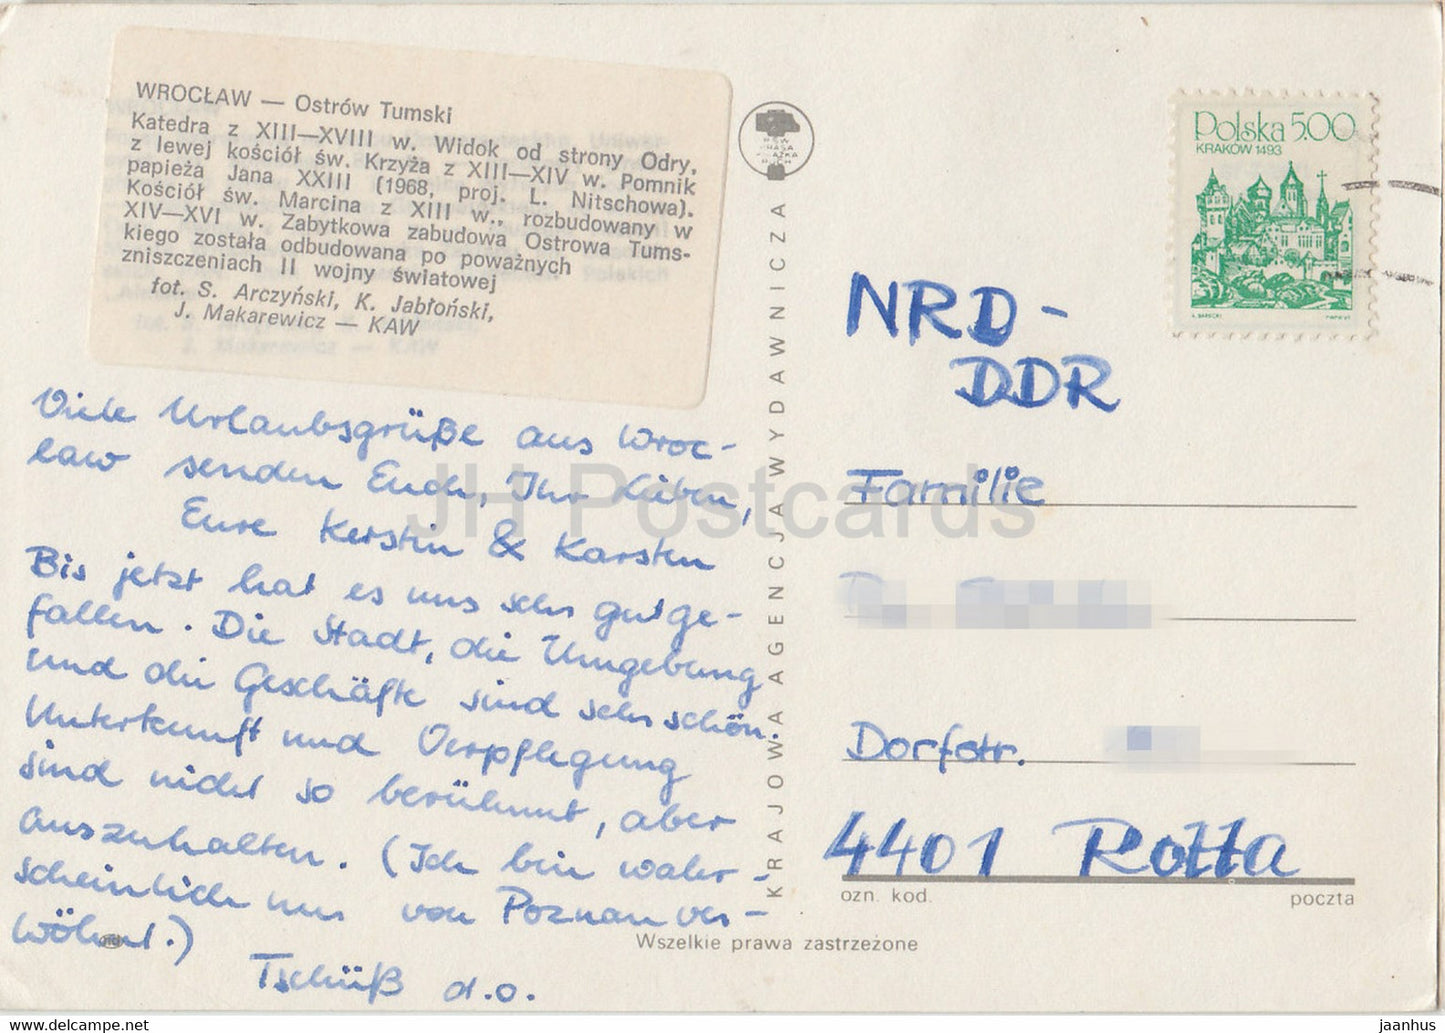 WROCŁAW — Ostrów Tumski
Katedra z XIII—XVIII w. Widok od strony Odry,
z lewej kościół św. Krzyża z XIII—XIV w. Pomnik
papieża Jana XXIII (1968, proj. L. Nitschowa).
Kościół św. Marcina z XIII w., rozbudowany w
XIV—XVI w. Zabytkowa zabudowa Ostrowa Tums-
kiego została odbudowana po poważnych
zniszczeniach II wojny światowej
fot. S. Arczyński, K. Jabłoński,
J. Makarewicz — KAW
Viele Urlaubsgrüße aus Wroc-
law senden Euch, Ihr Lieben,
Eure Kerstin & Karsten
Bis jetzt hat es uns sehr gut ge-
fallen. Die Stadt, die Umgebung
und die Geschäfte sind sehr schön.
Unterkunft und Verpflegung
sind nicht so berühmt, aber
auszuhalten. (Ich bin wahr-
scheinlich nur von Poznan ver-
wöhnt.)
Tschüß d.o.
KRAJOWA AGENCJA WYDAWNICZA
Polska 5.00
KRAKÓW 1493
NRD-
DDR
Familie
Dorfstr.
4401 Rotta
ozn. kod.
poczta
Wszelkie prawa zastrzeżone
JH Postcards
jaanhus